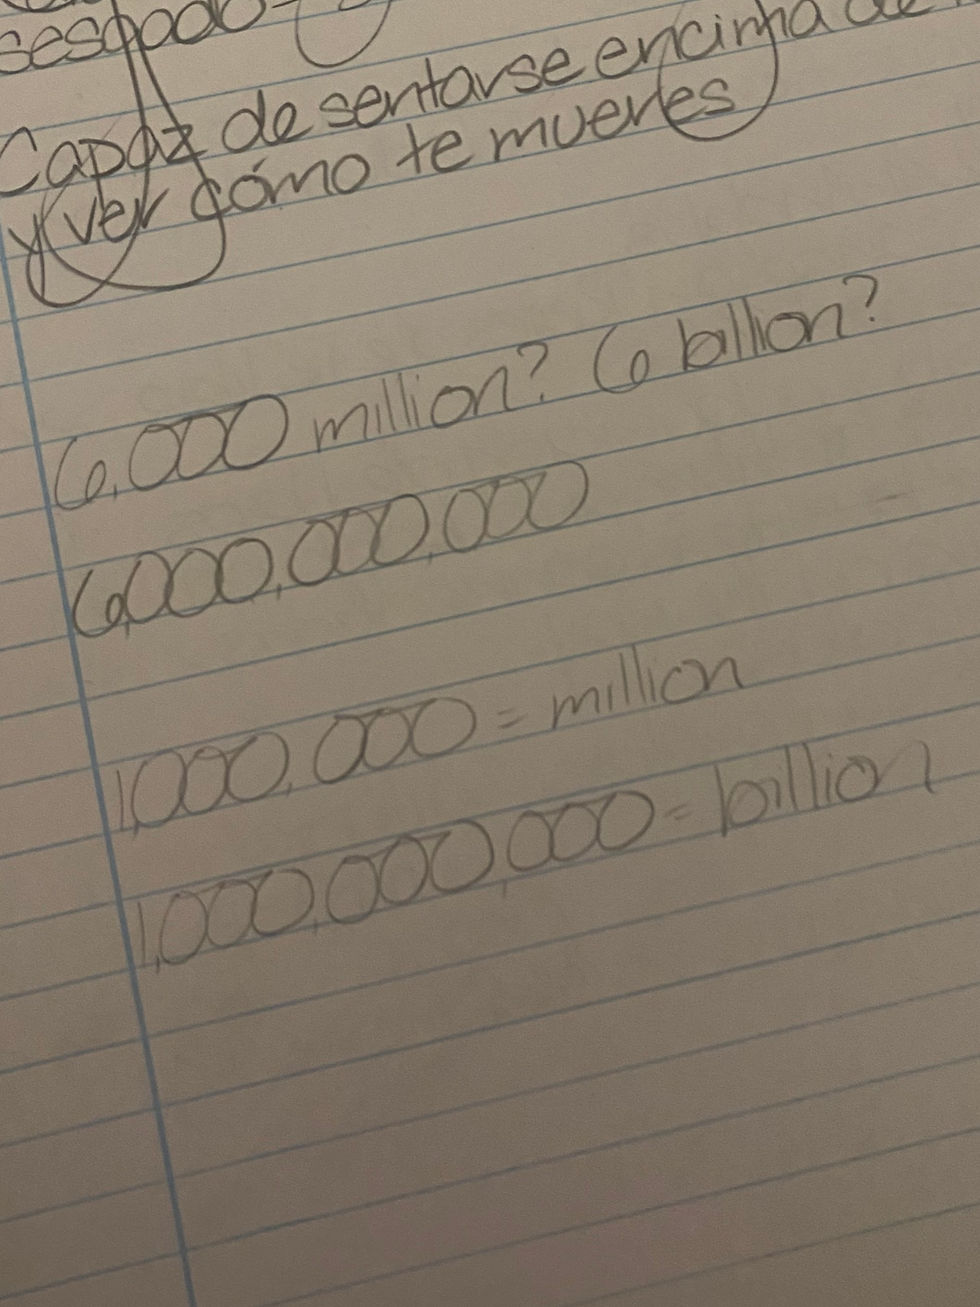 sesgado
Capaz de sentarse encima de
y ver cómo te mueres
6,000 million? 6 billion?
6,000,000,000
1,000,000 = million
1,000,000,000 = billion